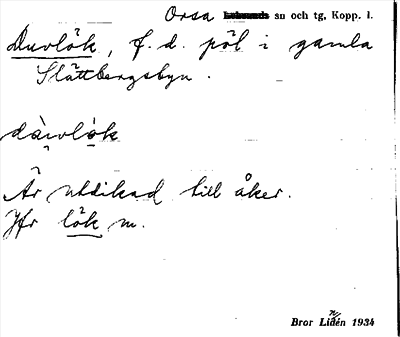 Orsa sn och tg, Kopp. l.
Duvlök, f. d. pöl i gamla
Slättbergsbyn.
dàvlòk
Är utdikad till åker.
Jfr lök m.
Bror Lidén 1934